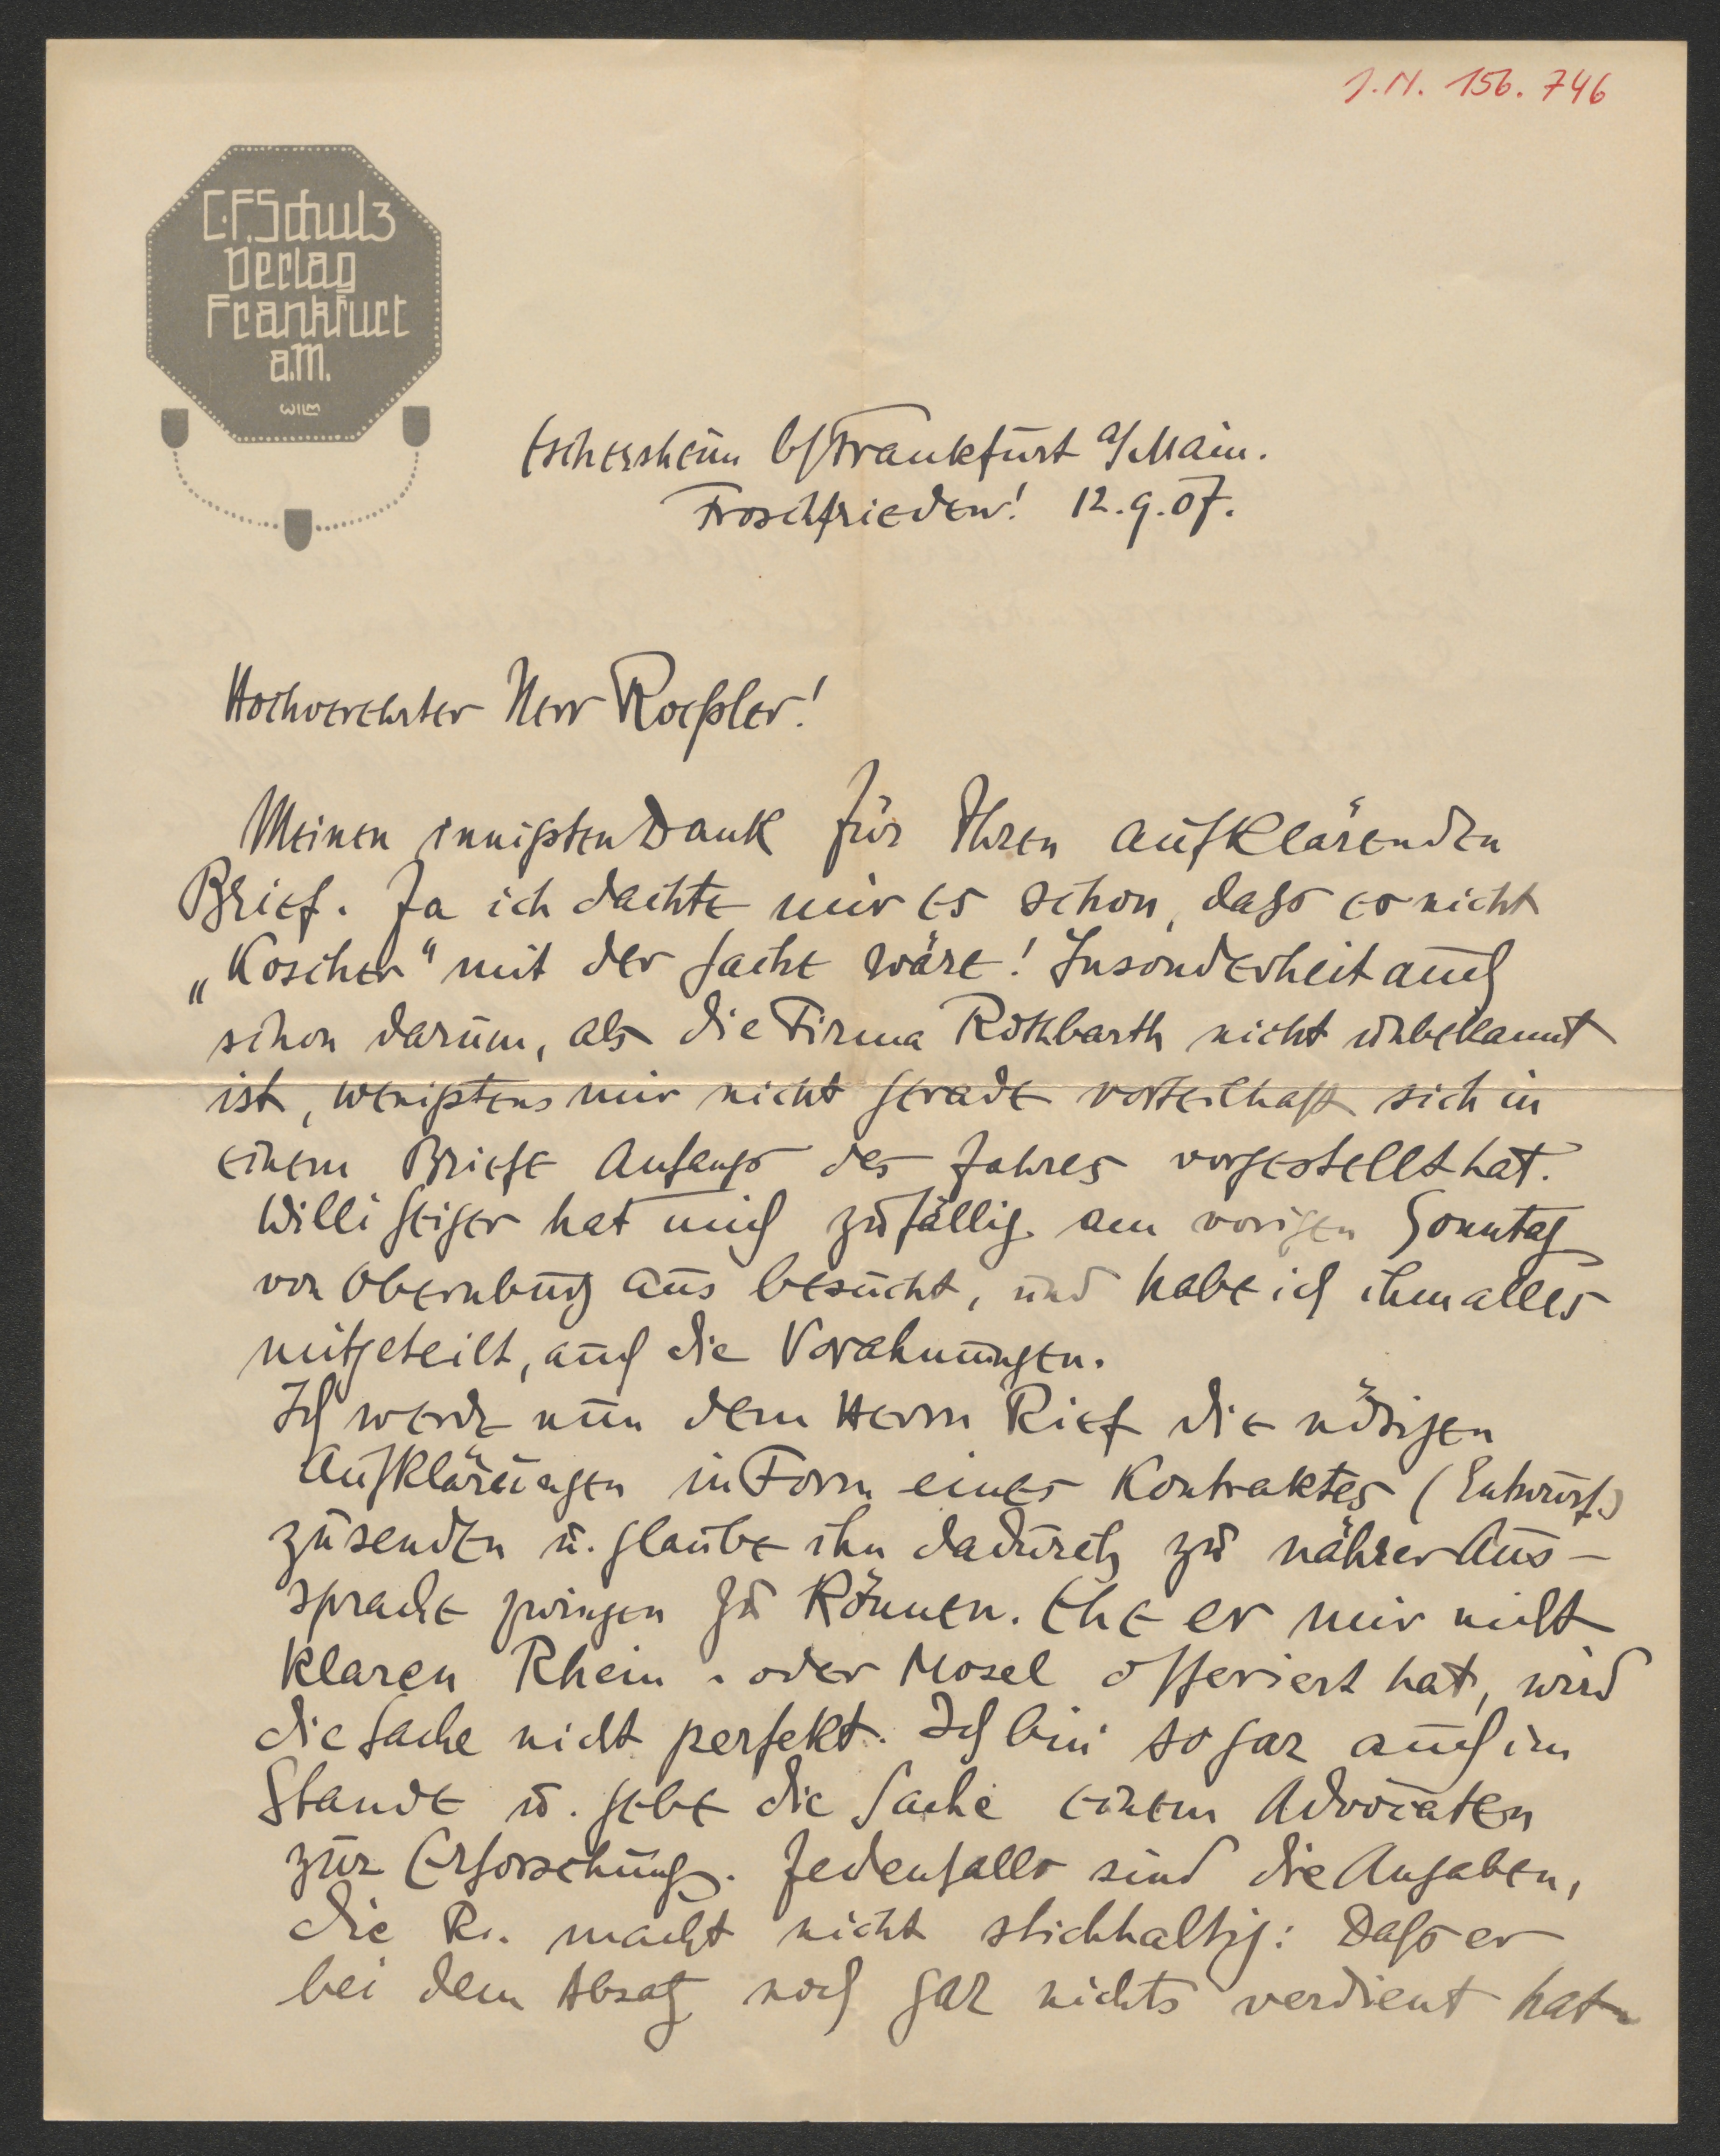 J.N. 156.746
C.F.Schulz
Verlag
Frankfurt
a.M.
WILM
Eschersheim b/Frankfurt a/Main.
Froschfrieden! 12.9.07.
Hochverehrter Herr Roeßler!
Meinen innigsten Dank für Ihren aufklärenden
Brief. Ja ich dachte mir es schon, dass es nicht
„Koscher" mit der Sache wäre! Insonderheit auch
schon darum, als die Firma Rothbarth nicht unbekannt
ist, wenigstens mir nicht gerade vorteilhaft sich in
einem Briefe Anfangs des Jahres vorgestellt hat.
Willi Geiger hat mich zufällig am vorigen Sonntag
von Obernburg aus besucht, und habe ich ihm alles
mitgeteilt, auch die Vorahnungen.
Ich werde nun dem Herrn Rief die nötigen
Aufklärungen in Form eines Kontraktes (Entwurf.)
zusenden u. glaube ihn dadurch zu nährer Aus-
sprache zwingen zu können. Ehe er mir nicht
klaren Rhein - oder Mosel offeriert hat, wird
die Sache nicht perfekt. Ich bin sogar auch im
Stande u. gebe die Sache einem Advocaten
zur Erforschung. Jedenfalls sind die Angaben,
die R. macht nicht stichhaltig: Dass er
bei dem Absatz noch gar nichts verdient hat